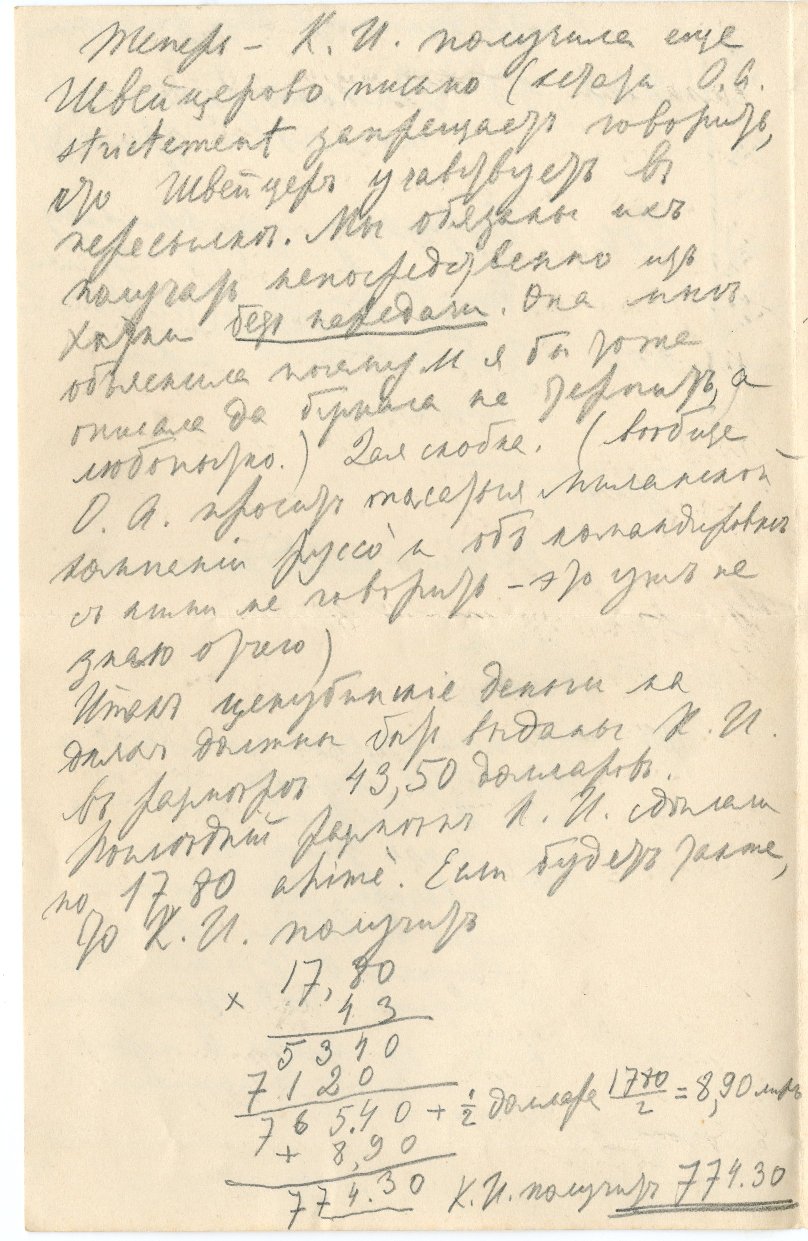 Теперь – К. И. получила еще
Швейцерово письмо (кстати О. А.
strictement запрещаетъ говорить,
что Швейцеръ участвуетъ въ
пересылкѣ. Мы обязаны ихъ
получать непосредственно изъ
безъ передачи. Она мнѣ
объяснила почему и я бы тоже
описала да бумага не терпитъ, а
любопытно.) 2ая скобка. (вообще
О. А. проситъ опасаться миланской
компаніи руссо и объ командировкѣ
съ ними не говорить – это ужъ не
знаю отчего)
Итакъ цекубинскіе деньги на
дняхъ должны быть выданы К. И.
въ размѣрѣ 43,50 долларовъ.
Послѣдній размѣнъ К. И. сдѣлали
по 17,80 ahimè. Если будетъ также,
то К. И. получитъ
17,80
x 43
5340
7120
765.40 + 1/2 доллара 1780/2 = 8,90 лиръ
+ 8,90
774.30 К. И. получитъ 774.30